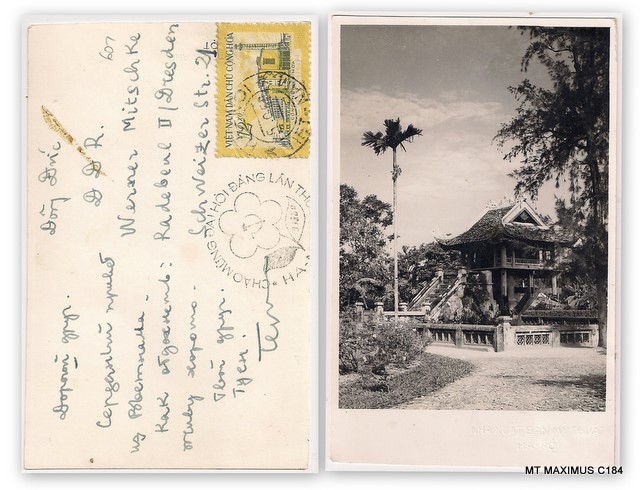 607
Дорогой друг.
Сердечный привет
из Вьетнама.
Как здоровье?
живу хорошо.
Твой друг.
Туен.
Đông Đức
D D R.
Werner Mitschke
Radebeul II / Dresden
Schweizer Str. 21
VIỆT NAM DÂN CHỦ CỘNG HÒA
CHÀO MỪNG ĐẠI HỘI ĐẢNG LẦN THỨ
1960
MT MAXIMUS C184